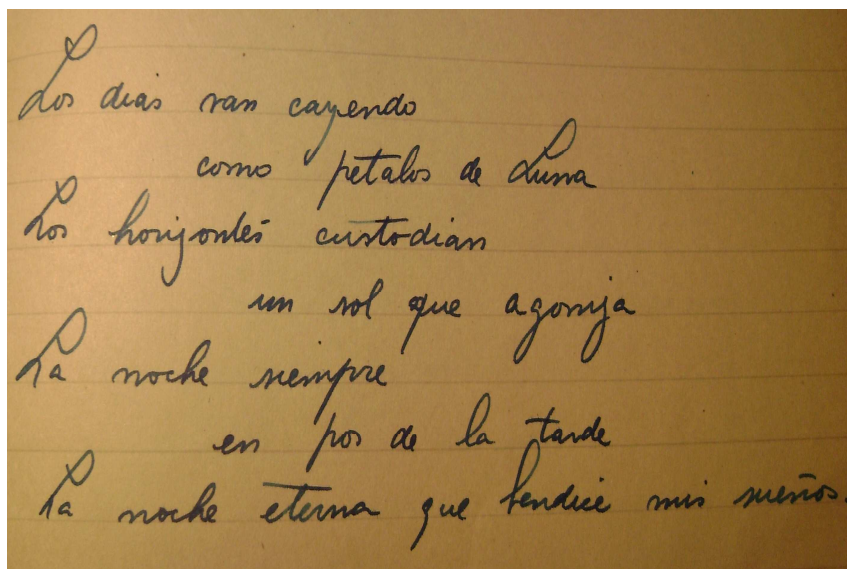 Los dias van cayendo
como petalos de Luna
Los horizontes custodian
un sol que agoniza
La noche siempre
en pos de la tarde
La noche eterna que bendice mis sueños.